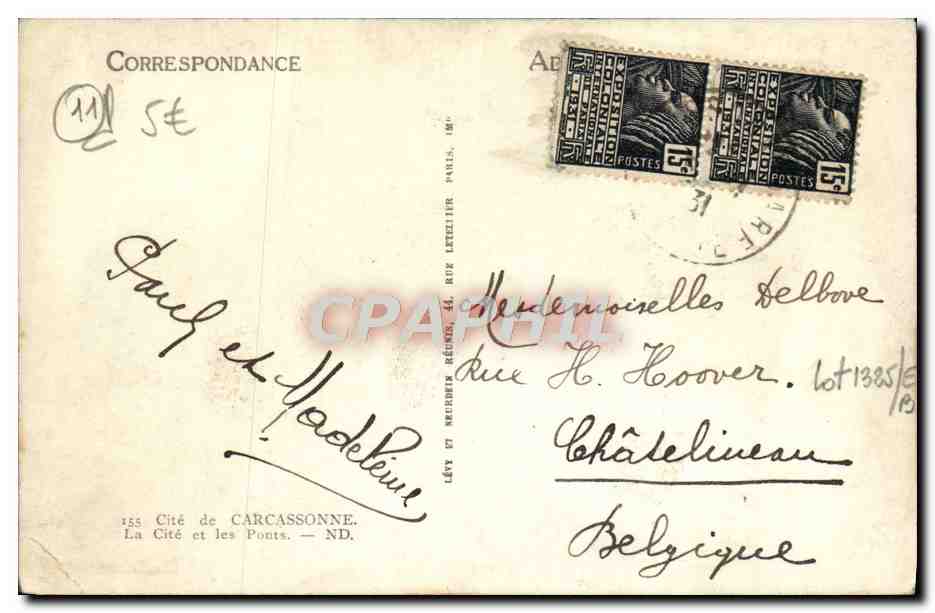 CORRESPONDANCE
11
5€
EXPOSITION
COLONIALE
INTERNATIONALE
PARIS 1931
RF
POSTES
15c
EXPOSITION
COLONIALE
INTERNATIONALE
PARIS 1931
RF
POSTES
15c
31
Paul et Madeleine
LÉVY ET NEURDEIN RÉUNIS, 44, RUE LETELLIER PARIS, IMP
CPAPHIL
Mesdemoiselles Delbove
Rue H. Hoover.
Châtelineau
Belgique
Lot 1325/E
/B
155 Cité de CARCASSONNE.
La Cité et les Ponts. — ND.